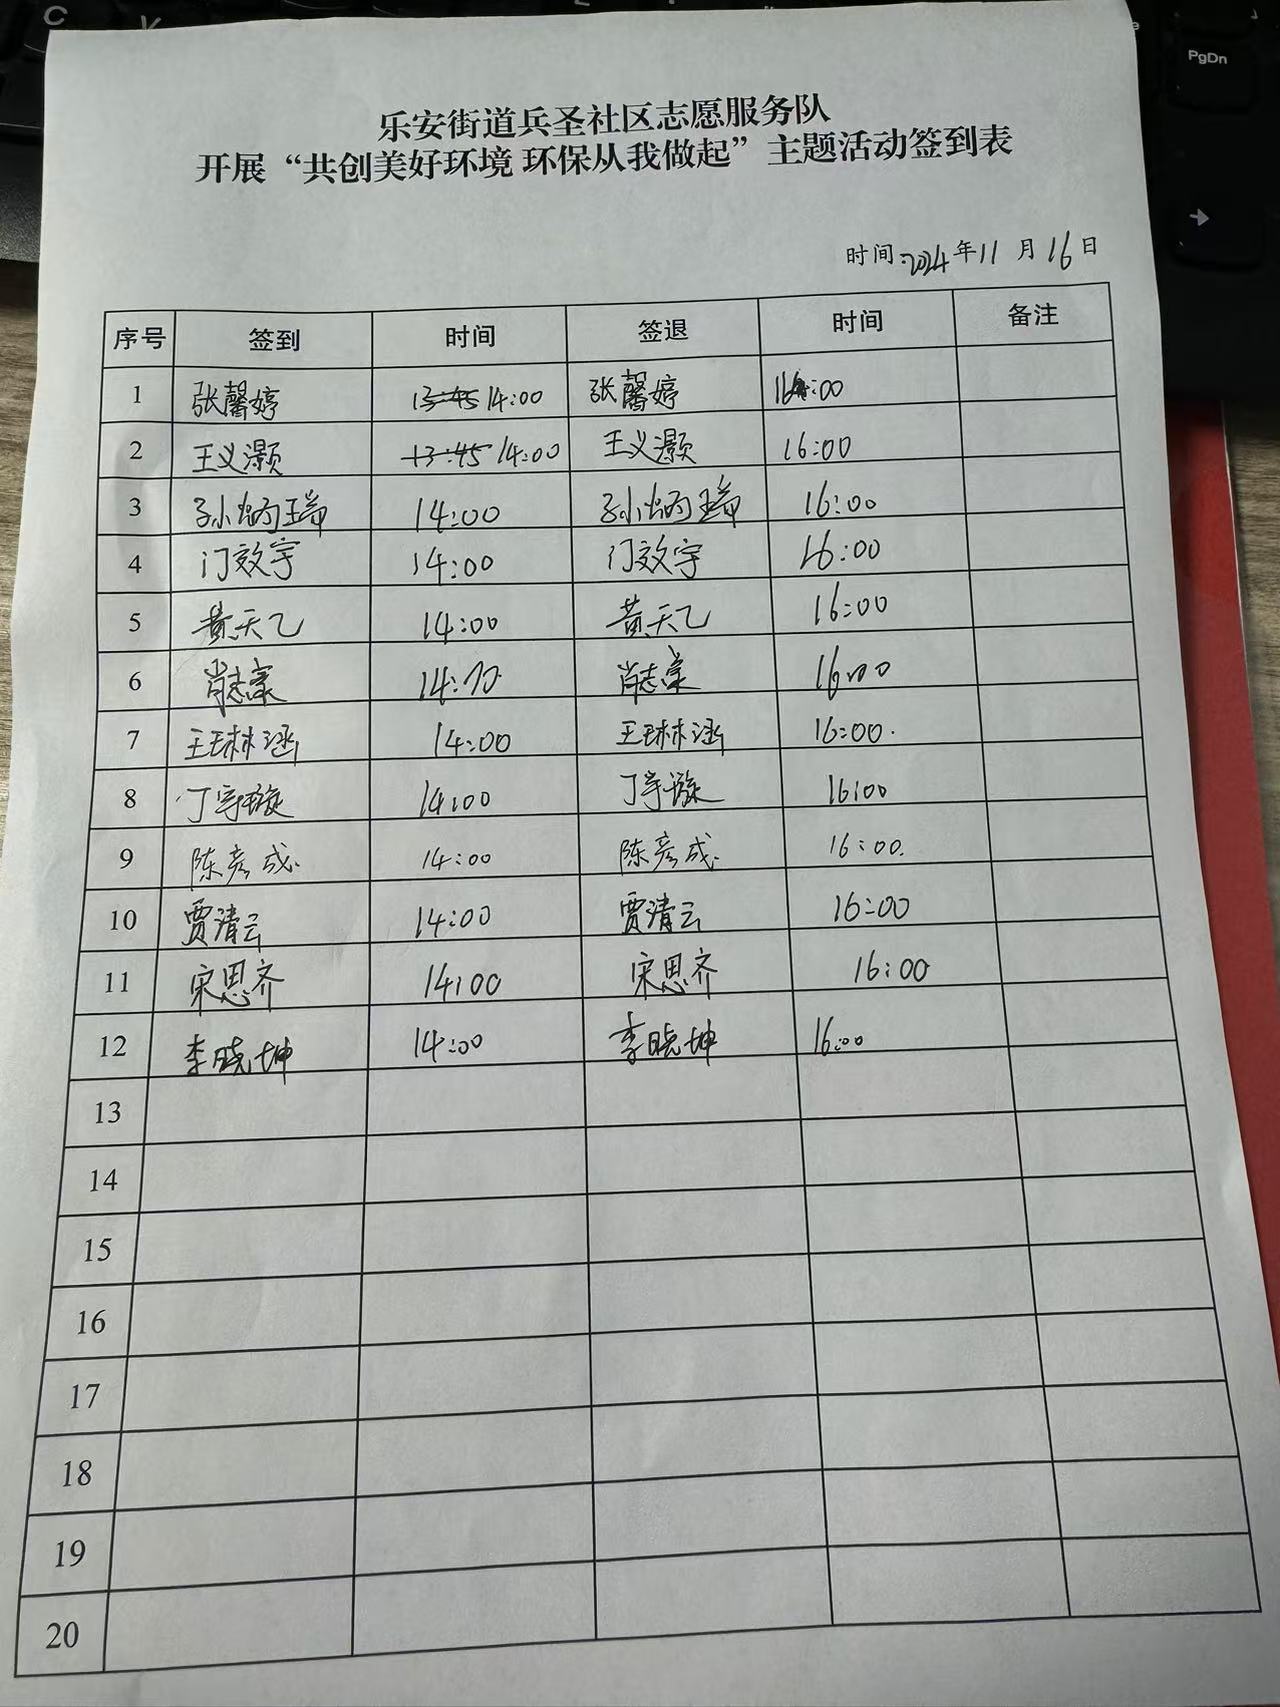 PgDn
乐安街道兵圣社区志愿服务队
开展“共创美好环境 环保从我做起”主题活动签到表
时间:2024年11月16日
序号 签到 时间 签退 时间 备注
1 张馨婷 13:45 14:00 张馨婷 16:00
2 王义灏 13:45 14:00 王义灏 16:00
3 孙炳瑞 14:00 孙炳瑞 16:00
4 门效宇 14:00 门效宇 16:00
5 黄天乙 14:00 黄天乙 16:00
6 肖志豪 14:00 肖志豪 16:00
7 王琳涵 14:00 王琳涵 16:00.
8 丁宇璇 14:00 丁宇璇 16:00
9 陈彦成. 14:00 陈彦成. 16:00.
10 贾清云 14:00 贾清云 16:00
11 宋思齐 14:00 宋思齐 16:00
12 李晓坤 14:00 李晓坤 16:00
13
14
15
16
17
18
19
20